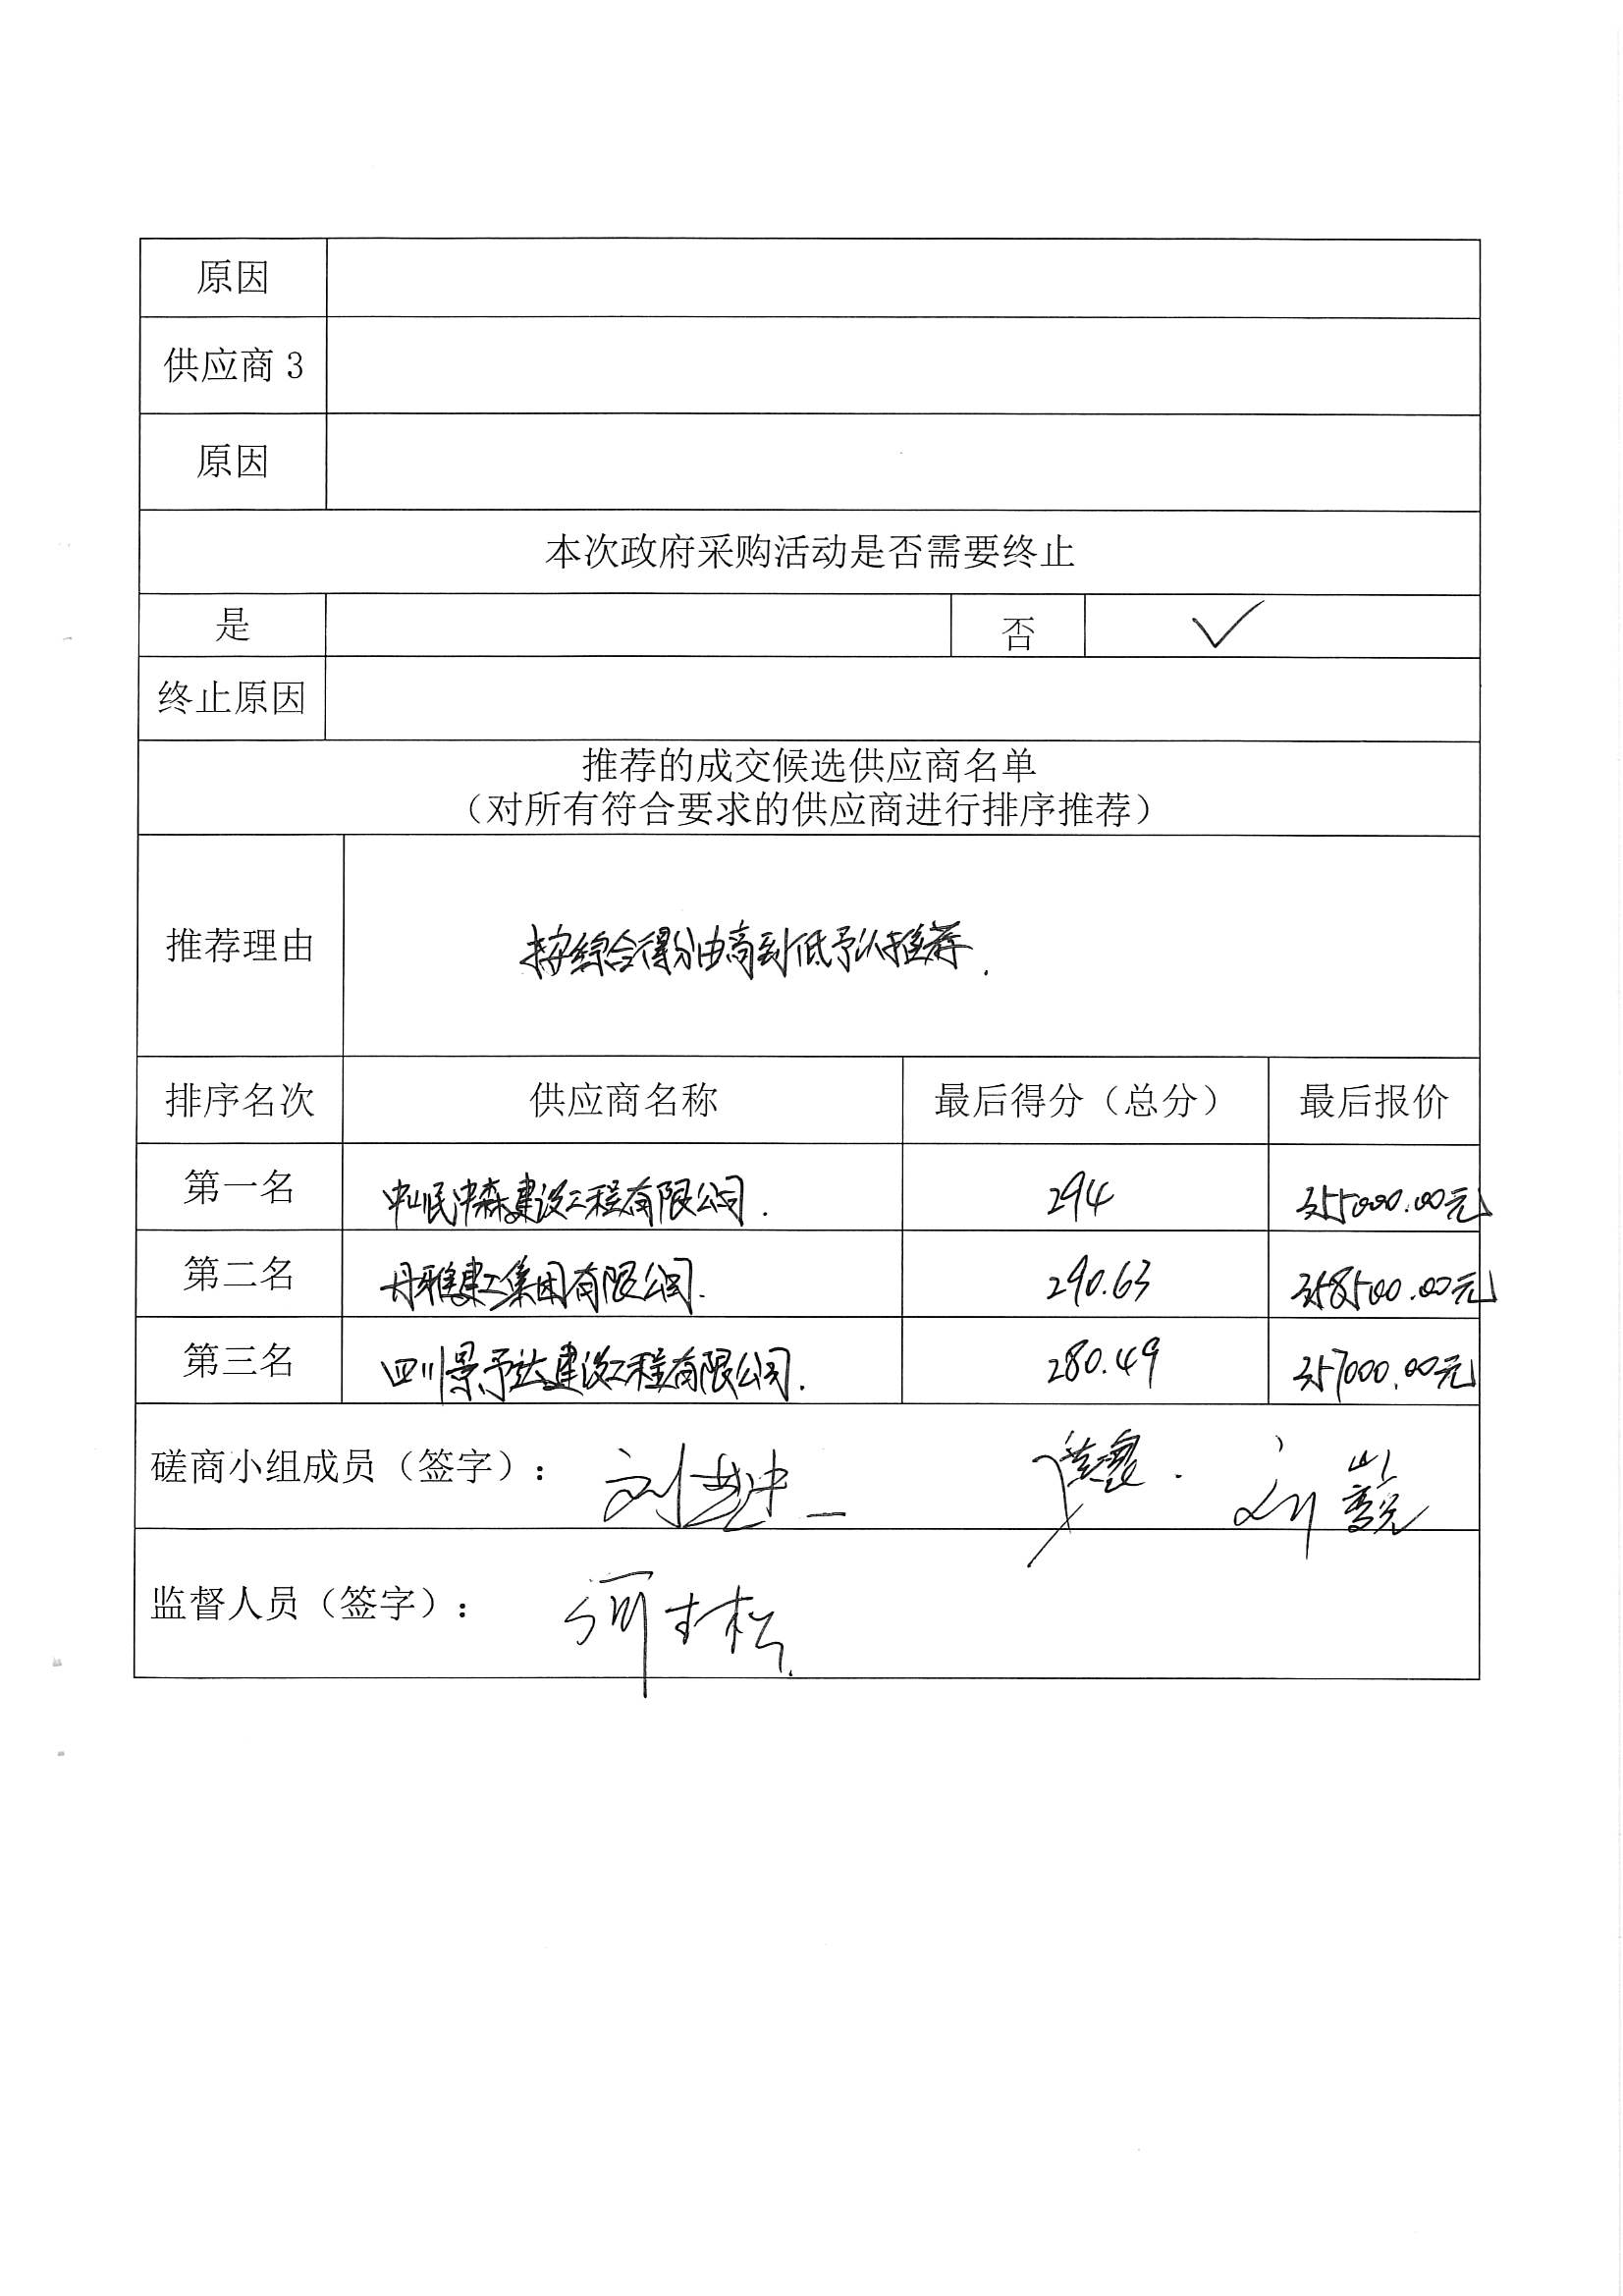 原因
供应商 3
原因
本次政府采购活动是否需要终止
是 否 ✓
终止原因
推荐的成交候选供应商名单
（对所有符合要求的供应商进行排序推荐）
推荐理由 按综合得分由高到低予以推荐.
排序名次 供应商名称 最后得分（总分） 最后报价
第一名 中岷中森建设工程有限公司. 294 355000.00元
第二名 丹雅建工集团有限公司. 290.63 358500.00元
第三名 四川景予达建设工程有限公司. 280.49 357000.00元
磋商小组成员（签字）：
监督人员（签字）：